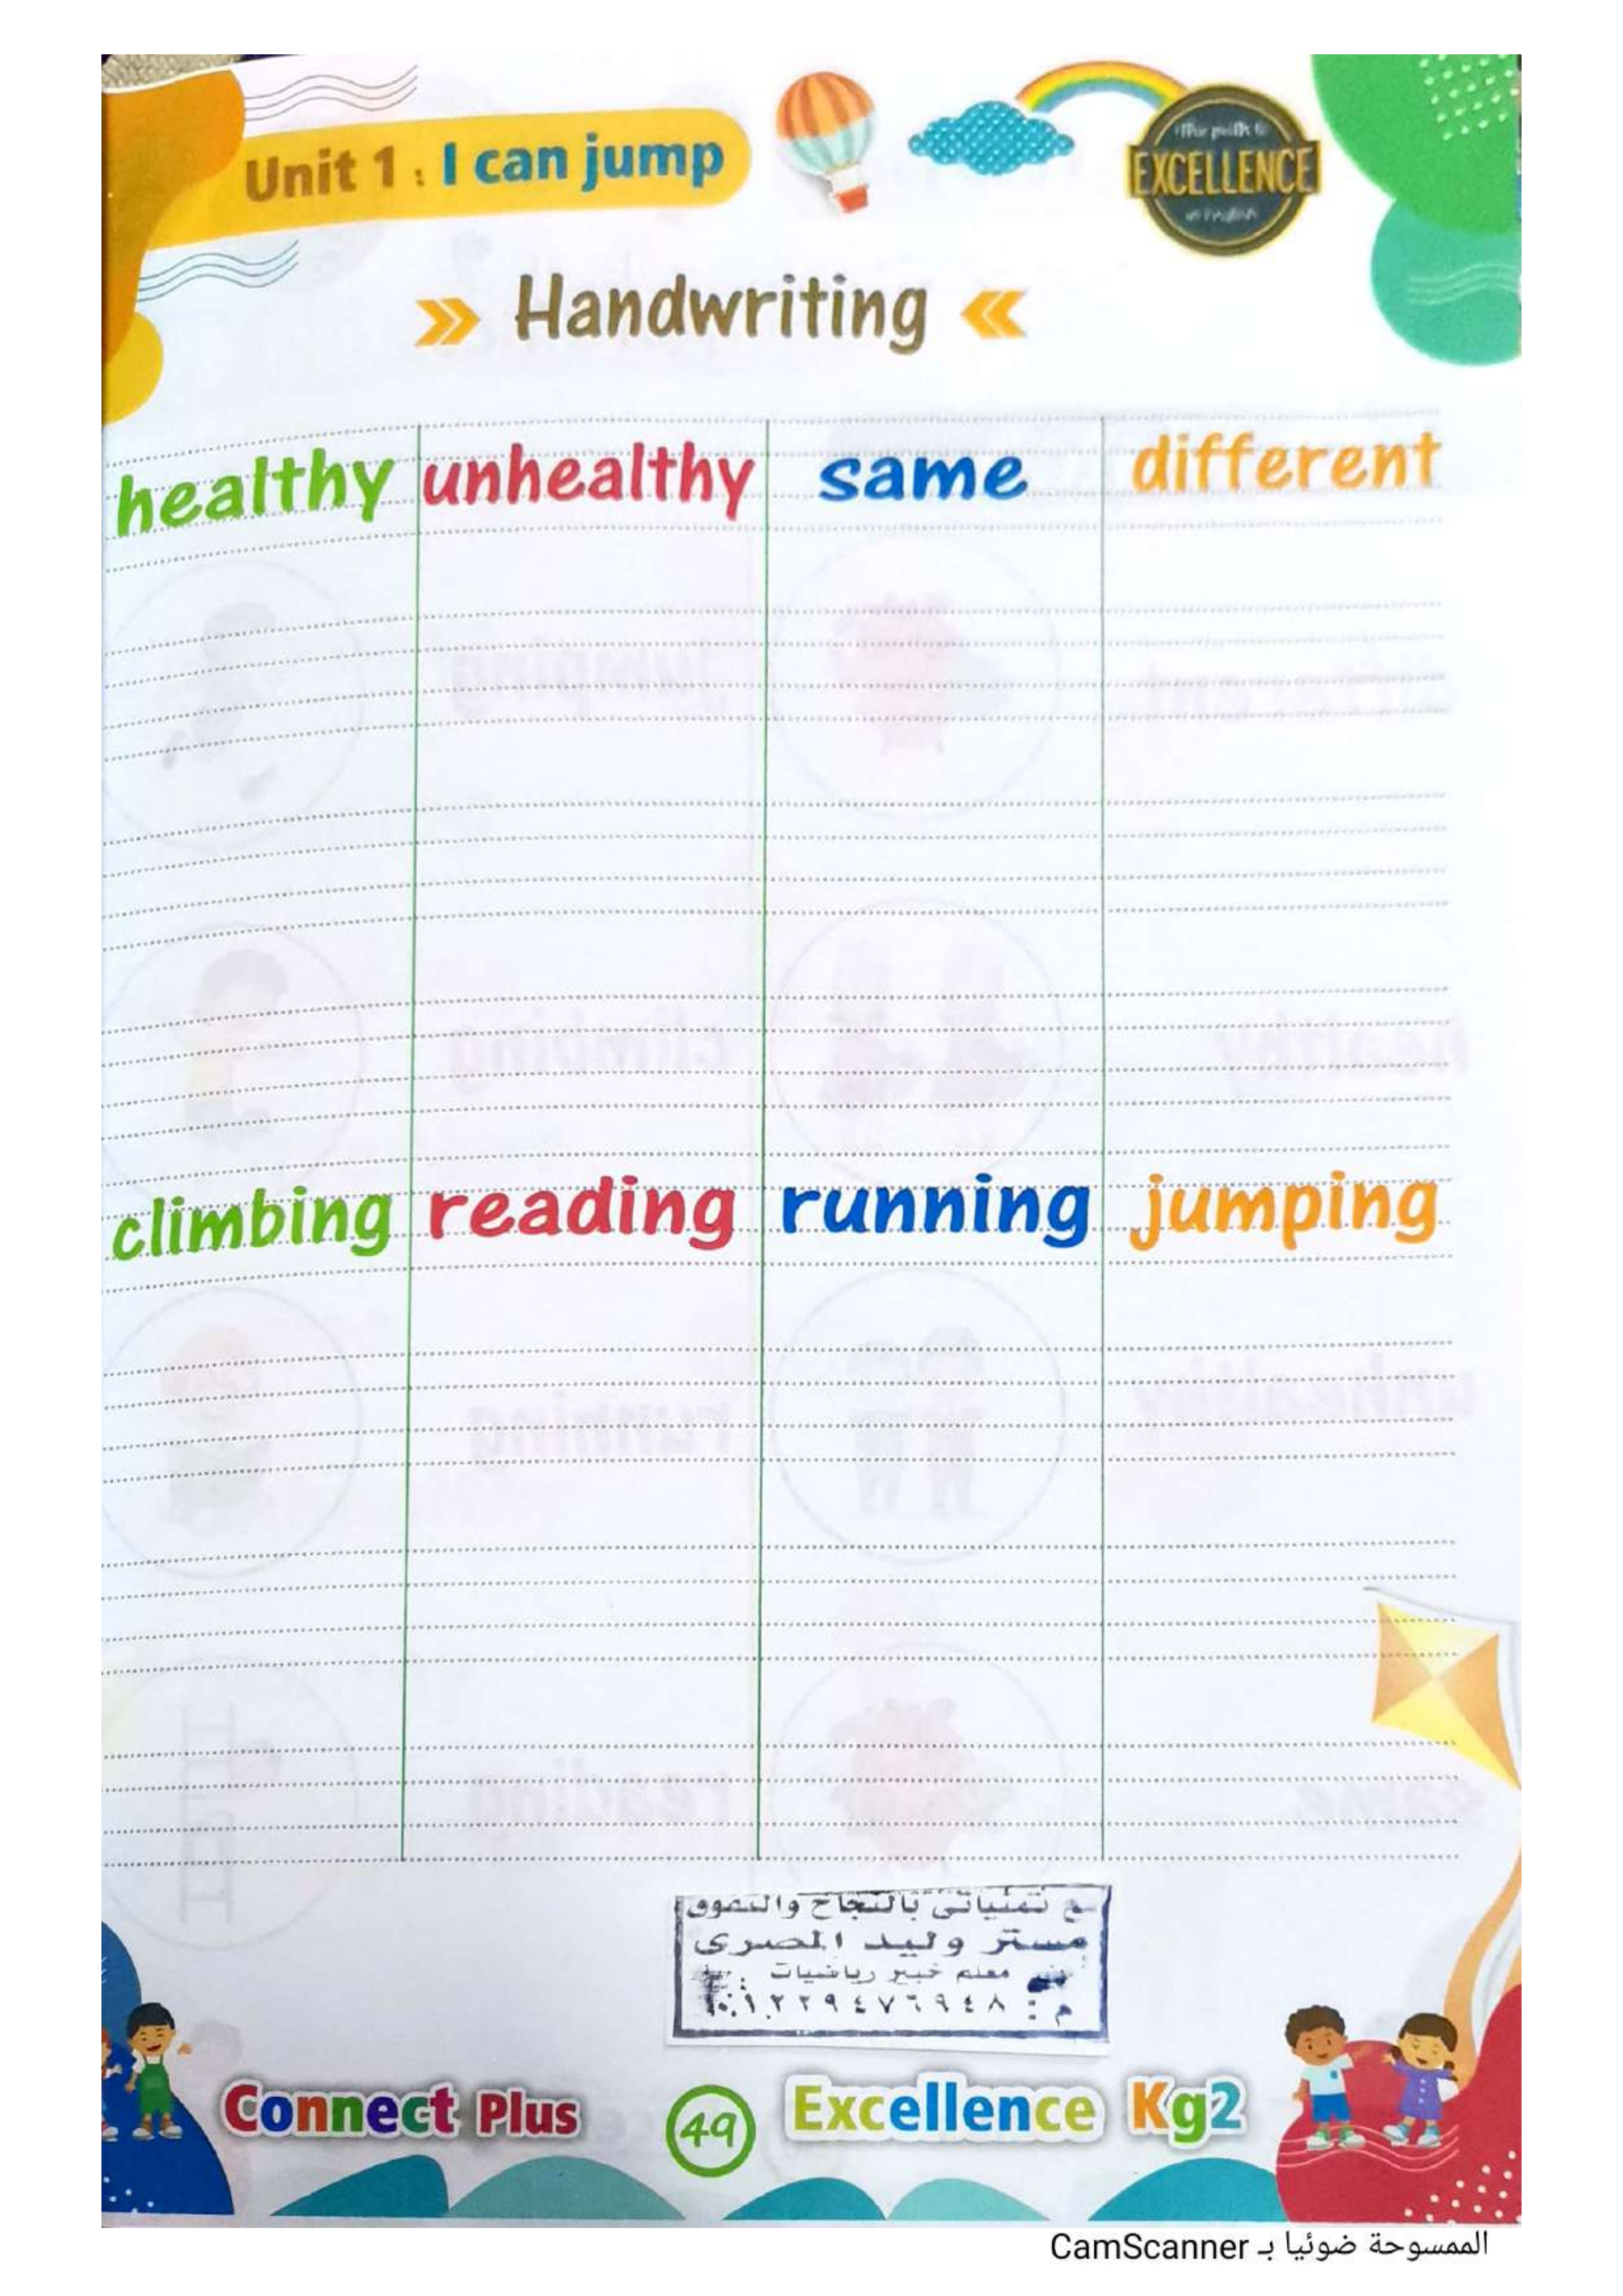 Unit 1 : I can jump
EXCELLENCE
Handwriting
healthy unhealthy same different
climbing reading running jumping
مع تمنياتى بالنجاح والتفوق
مستر وليد المصرى
معلم خبير رياضيات
م :
Connect Plus 49 Excellence Kg2
الممسوحة ضوئيا بـ CamScanner